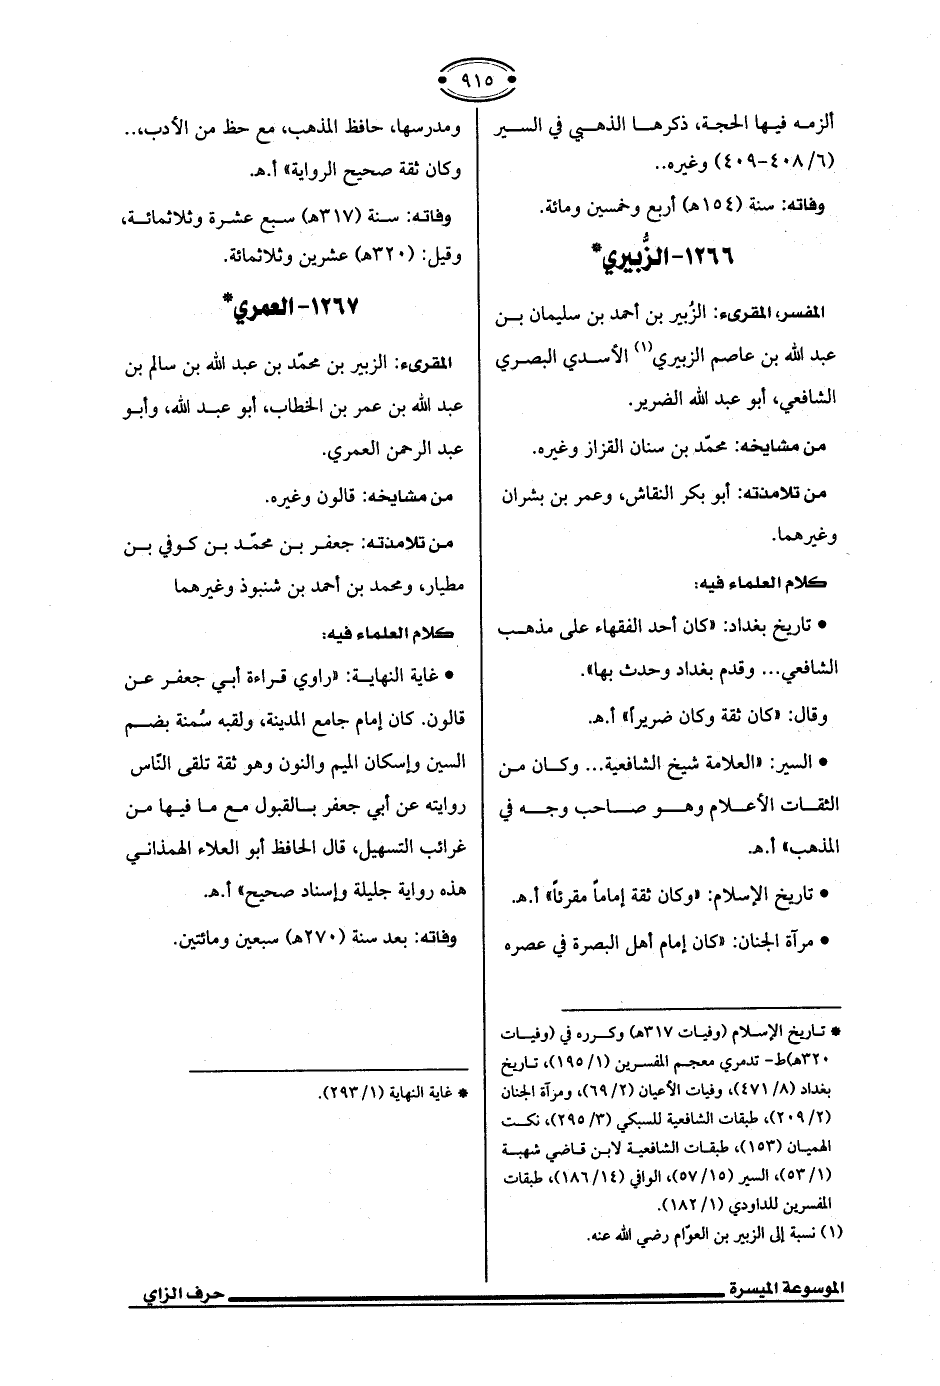 ٩١٥
ألزمه فيها الحجة، ذكرها الذهبي في السير
(٦/ ٤٠٨-٤٠٩) وغيره..
وفاته: سنة (١٥٤هـ) أربع وخمسين ومائة.
١٢٦٦- الزُّبيري*
المفسر، المقرىء: الزُبير بن أحمد بن سليمان بن
عبد الله بن عاصم الزبيري(١) الأسدي البصري
الشافعي، أبو عبد الله الضرير.
من مشايخه: محمّد بن سنان القزاز وغيره.
من تلامذته: أبو بكر النقاش، وعمر بن بشران
وغيرهما.
كلام العلماء فيه:
• تاريخ بغداد: «كان أحد الفقهاء على مذهب
الشافعي... وقدم بغداد وحدث بها».
وقال: «كان ثقة وكان ضريراً» أ.هـ.
• السير: «العلامة شيخ الشافعية... وكان من
الثقات الأعلام وهو صاحب وجه في
المذهب» أ.هـ.
• تاريخ الإسلام: «وكان ثقة إماماً مقرئاً» أ.هـ.
• مرآة الجنان: «كان إمام أهل البصرة في عصره
* تاريخ الإسلام (وفيات ٣١٧هـ) وكرره في (وفيات
٣٢٠هـ)ط- تدمري معجم المفسرين (١/ ١٩٥)، تاريخ
بغداد (٨/ ٤٧١)، وفيات الأعيان (٢/ ٦٩)، ومرآة الجنان
(٢/ ٢٠٩)، طبقات الشافعية للسبكي (٣/ ٢٩٥)، نكت
الهميان (١٥٣)، طبقات الشافعية لابن قاضي شهبة
(١/ ٥٣)، السير (١٥/ ٥٧)، الوافي (١٤/ ١٨٦)، طبقات
المفسرين للداودي (١/ ١٨٢).
(١) نسبة إلى الزبير بن العوّام رضي الله عنه.
ومدرسها، حافظ المذهب، مع حظ من الأدب،..
وكان ثقة صحيح الرواية» أ.هـ.
وفاته: سنة (٣١٧هـ) سبع عشرة وثلاثمائة،
وقيل: (٣٢٠هـ) عشرين وثلاثمائة.
١٢٦٧- العمري*
المقرىء: الزبير بن محمّد بن عبد الله بن سالم بن
عبد الله بن عمر بن الخطاب، أبو عبد الله، وأبو
عبد الرحمن العمري.
من مشايخه: قالون وغيره.
من تلامذته: جعفر بن محمّد بن كوفي بن
مطيار، ومحمد بن أحمد بن شنبوذ وغيرهما
كلام العلماء فيه:
• غاية النهاية: «راوي قراءة أبي جعفر عن
قالون. كان إمام جامع المدينة، ولقبه سُمنة بضم
السين وإسكان الميم والنون وهو ثقة تلقى النّاس
روايته عن أبي جعفر بالقبول مع ما فيها من
غرائب التسهيل، قال الحافظ أبو العلاء الهمذاني
هذه رواية جليلة وإسناد صحيح» أ.هـ.
وفاته: بعد سنة (٢٧٠هـ) سبعين ومائتين.
* غاية النهاية (١/ ٢٩٣).
الموسوعة الميسرة
حرف الزاي